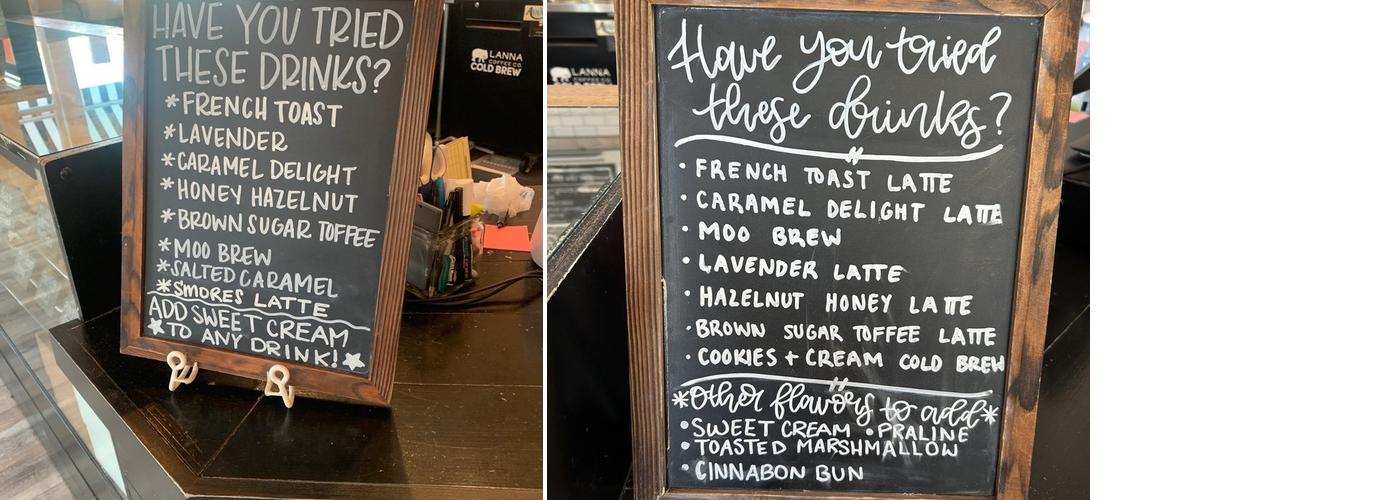 HAVE YOU TRIED
THESE DRINKS?
*FRENCH TOAST
*LAVENDER
*CARAMEL DELIGHT
*HONEY HAZELNUT
*BROWN SUGAR TOFFEE
*MOO BREW
*SALTED CARAMEL
*SMORES LATTE
ADD SWEET CREAM
TO ANY DRINK!
LANNA
COFFEE CO.
COLD BREW
LANNA
Have you tried
these drinks?
• FRENCH TOAST LATTE
• CARAMEL DELIGHT LATTE
• MOO BREW
• LAVENDER LATTE
• HAZELNUT HONEY LATTE
• BROWN SUGAR TOFFEE LATTE
• COOKIES + CREAM COLD BREW
*Other flavors to add*
• SWEET CREAM • PRALINE
• TOASTED MARSHMALLOW
• CINNABON BUN